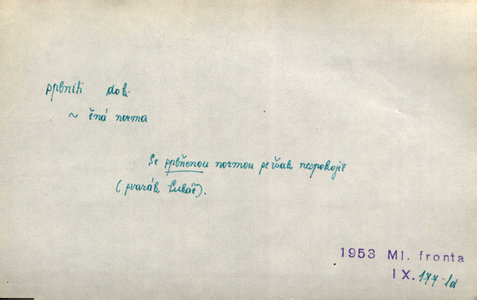 splniti dok.
~ ěná norma
Se splněnou normou se však nespokojil
(svazák Lukáš).
1953 Ml. fronta
IX. 177-1d